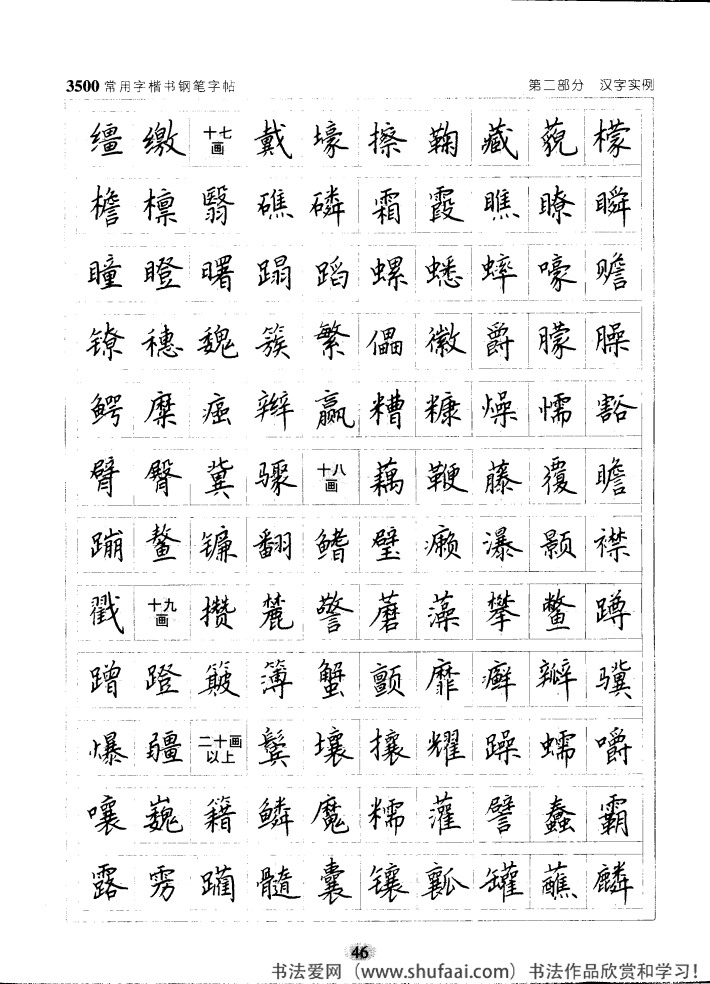 3500常用字楷书钢笔字帖 第二部分 汉字实例
缰 缴 十七画 戴 壕 擦 鞠 藏 藐 檬
檐 檩 翳 礁 磷 霜 霞 瞧 瞭 瞬
瞳 瞪 曙 蹋 蹈 螺 蟋 蟀 嚎 赡
镣 穗 魏 簇 繁 儡 徽 爵 朦 臊
鳄 糜 癌 辫 赢 糟 糠 燥 懦 豁
臂 臀 冀 骤 十八画 藕 鞭 藤 覆 瞻
蹦 鳌 镰 翻 鳍 璧 濒 瀑 颢 襟
戳 十九画 攒 麓 警 蘑 藻 攀 鳖 蹲
蹭 蹬 簸 簿 蟹 颤 靡 癣 瓣 骥
爆 疆 二十画以上 鬓 壤 攘 耀 躁 蠕 嚼
嚷 巍 籍 鳞 魔 糯 灌 譬 蠢 霸
露 雳 躏 髓 囊 镶 瓤 罐 蘸 麟
46
书法爱网（www.shufaai.com）书法作品欣赏和学习！